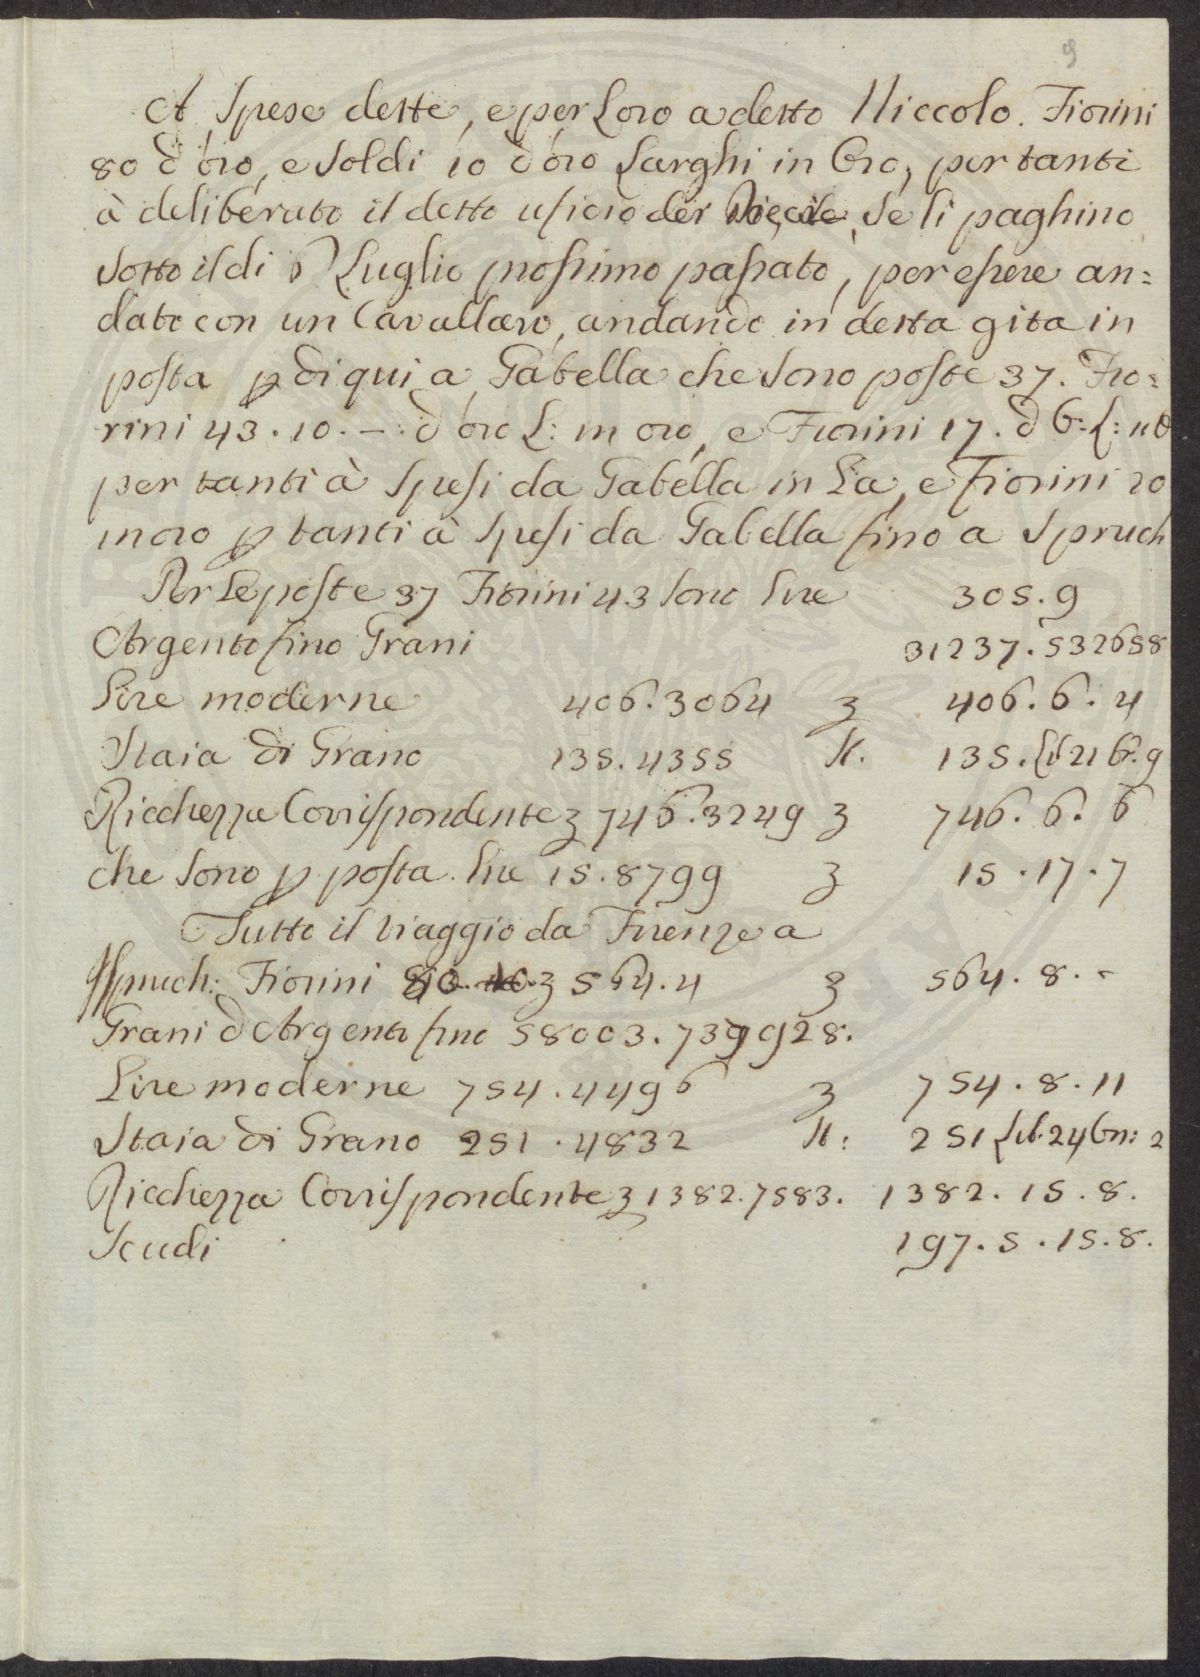 9
A Spese dette, e per Loro a detto Niccolo. Fiorini
80 d'oro, e soldi 10 d'oro Larghi in Oro, per tanti
à deliberato il detto uficio dei se li paghino
sotto il di Luglio prossimo passato, per essere an=
dato con un Cavallaro, andando in detta gita in
posta p di qui a Gabella che sono poste 37. Fio=
rini 43.10.–. d'oro L: in oro, e Fiorini 17. d'
per tanti à spesi da Gabella in La, e fiorini 20
in oro p tanti à spesi da Gabella fino a Spruch
Per Le poste 37 Fiorini 43 sono Lire 305.9
Argento fino Grani 31237.532658
Lire moderne 406.3064 ʒ 406.6.4
Staia di Grano 135.4355 St. 135. Lib 21 6.9
Ricchezza Corrispondente ʒ 746.3249 ʒ 746.6.6
che sono p posta Lire 15.8799 ʒ 15.17.7
Tutto il viaggio da Firenze a
Ispruch: Fiorini ʒ 564.4 ʒ 564.8.-
Grani d'Argento fino 58003.739928.
Lire moderne 754.4496 ʒ 754.8.11
Staia di Grano 251.4832 St: 251 Lib. 24 On: 2
Ricchezza Corrispondente ʒ 1382.7583. 1382.15.8.
Scudi 197.5.15.8.